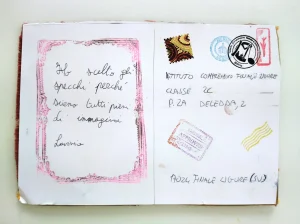 Ho scelto gli
specchi perché
sono tutti pieni
di immagini
ISTITUTO COMPRENSIVO FINALE LIGURE
CLASSE 2C
P.ZA DELEDDA, 2
FINALE LIGURE (SV)